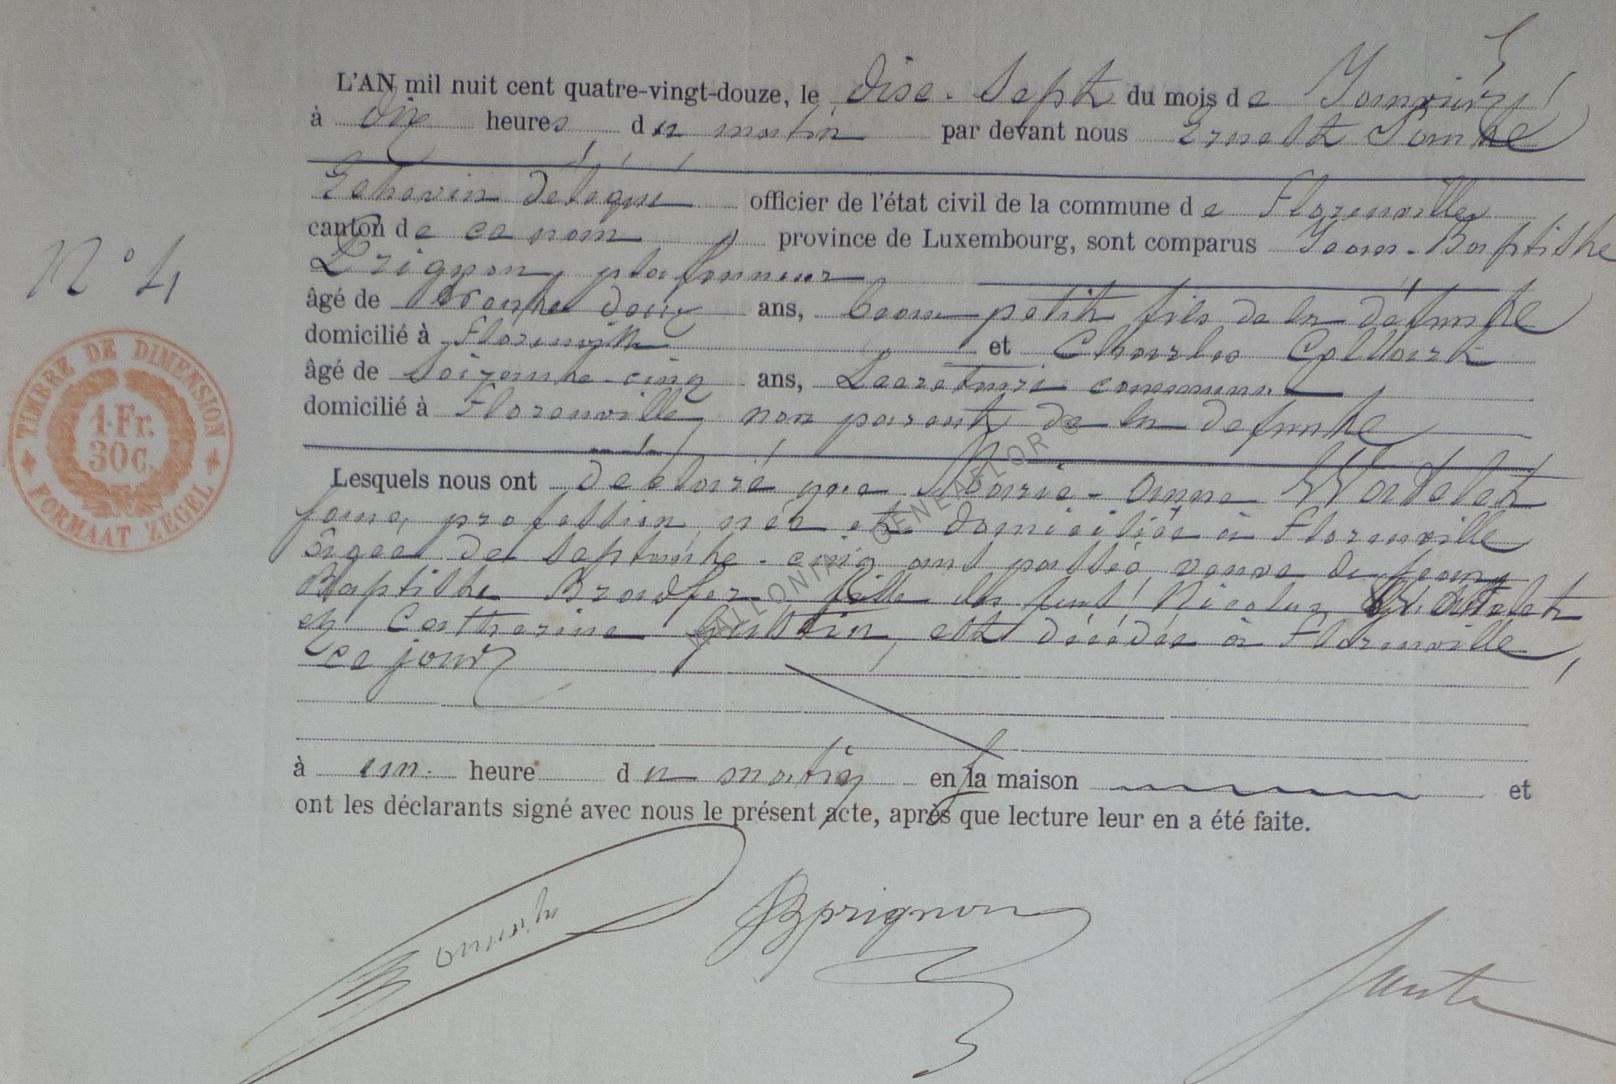 L'AN mil huit cent quatre-vingt-douze, le dix-sept du mois de Janvier
à dix heures du matin par devant nous Ernest
Echevin délégué officier de l'état civil de la commune de Florenville
canton de ce nom, province de Luxembourg, sont comparus Jean-Baptiste
Prignon, plafonneur
N° 4
âgé de trente deux ans, beau petit fils de la défunte
domicilié à Florenville et Charles
âgé de soixante-cinq ans, Secrétaire communal
domicilié à Florenville, non parent de la defunte
TIMBRE DE DIMENSION
1 Fr.
30 c.
FORMAAT ZEGEL
Lesquels nous ont déclaré que Marie-Anne Watelet
sans profession née et domiciliée à Florenville
âgée de septante-cinq ans passés veuve de Jean
Baptiste fille des feus Nicolas Watelet
et Catherine est décédée à Florenville,
ce jour
WALLONIA GENEAFLOR ©
à un heure du matin en sa maison et
ont les déclarants signé avec nous le présent acte, après que lecture leur en a été faite.
JBprignon